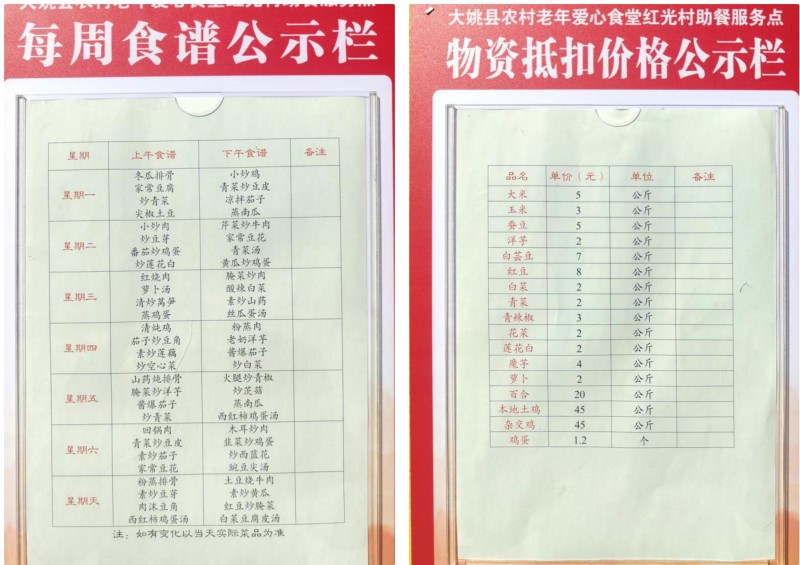 大姚县农村老年爱心食堂红光村助餐服务点
每周食谱公示栏
星期 上午食谱 下午食谱 备注
星期一
冬瓜排骨 小炒鸡
家常豆腐 青菜炒豆皮
炒青菜 凉拌茄子
尖椒土豆 蒸南瓜
星期二
小炒肉 芹菜炒牛肉
炒豆芽 家常豆花
番茄炒鸡蛋 青菜汤
炒莲花白 黄瓜炒鸡蛋
星期三
红烧肉 腌菜炒肉
萝卜汤 酸辣白菜
清炒莴笋 素炒山药
蒸鸡蛋 丝瓜蛋汤
星期四
清炖鸡 粉蒸肉
茄子炒豆角 老奶洋芋
素炒莲藕 酱爆茄子
炒空心菜 炒白菜
星期五
山药炖排骨 火腿炒青椒
腌菜炒洋芋 炒茨菇
酱爆茄子 蒸南瓜
炒青菜 西红柿鸡蛋汤
星期六
回锅肉 木耳炒肉
青菜炒豆皮 韭菜炒鸡蛋
素炒茄子 炒西蓝花
家常豆花 豌豆尖汤
星期天
粉蒸排骨 土豆烧牛肉
素炒豆芽 素炒黄瓜
肉沫豆角 红豆炒腌菜
西红柿鸡蛋汤 白菜豆腐皮汤
注：如有变化以当天实际菜品为准
大姚县农村老年爱心食堂红光村助餐服务点
物资抵扣价格公示栏
品名 单价（元） 单位 备注
大米 5 公斤
玉米 3 公斤
蚕豆 5 公斤
洋芋 2 公斤
白芸豆 7 公斤
红豆 8 公斤
白菜 2 公斤
青菜 2 公斤
青辣椒 3 公斤
花菜 2 公斤
莲花白 2 公斤
魔芋 4 公斤
萝卜 2 公斤
百合 20 公斤
本地土鸡 45 公斤
杂交鸡 45 公斤
鸡蛋 1.2 个